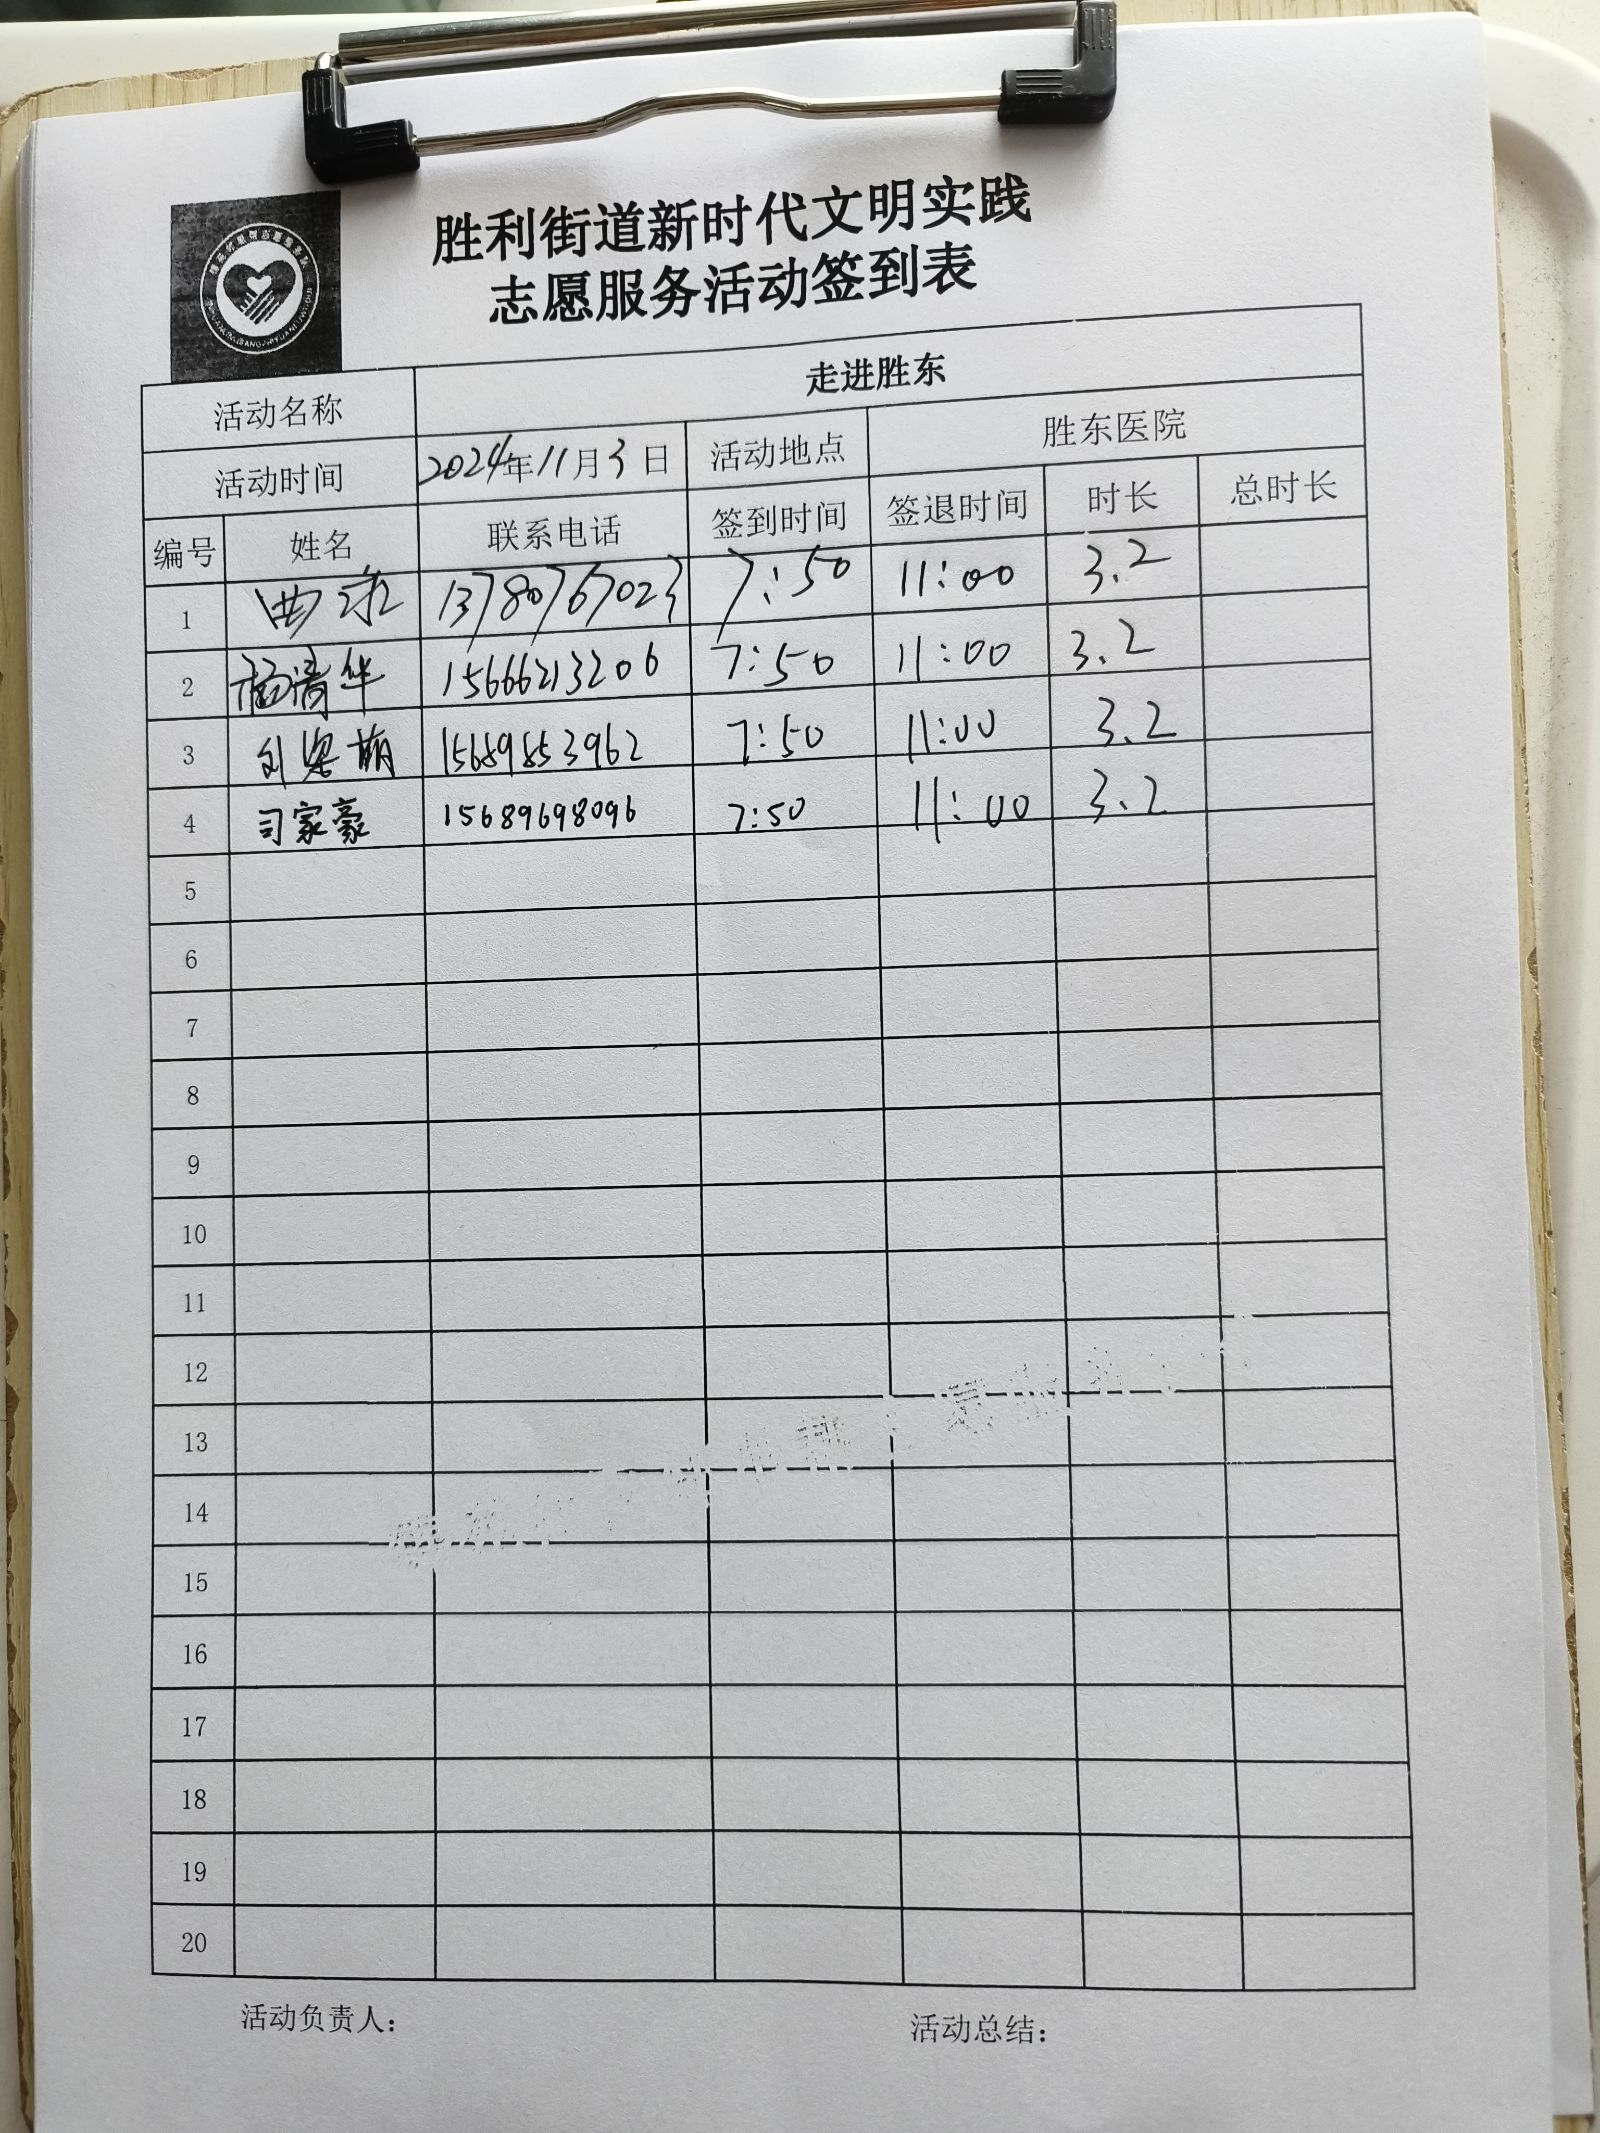 胜利街道新时代文明实践
志愿服务活动签到表
活动名称 走进胜东
活动时间 2024年11月3日 活动地点 胜东医院
编号 姓名 联系电话 签到时间 签退时间 时长 总时长
1 13780767023 7:50 11:00 3.2
2 杨清华 15666213206 7:50 11:00 3.2
3 刘梁萌 15689853962 7:50 11:00 3.2
4 司家豪 15689698096 7:50 11:00 3.2
5
6
7
8
9
10
11
12
13
14
15
16
17
18
19
20
活动负责人: 活动总结: